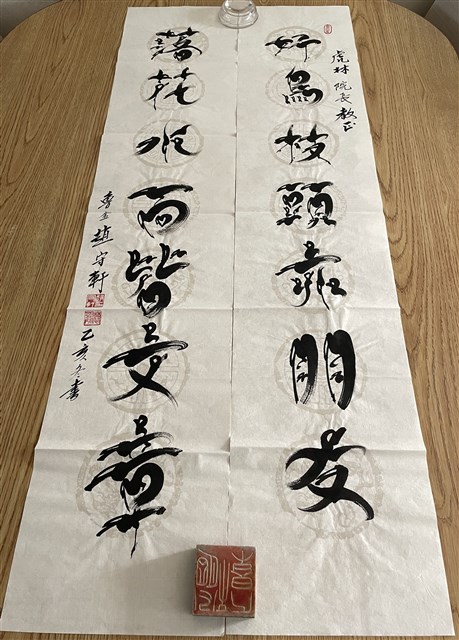 虎林院長教正
好鳥枝頭亦朋友
落花水面皆文章
趙守軒
乙亥冬書